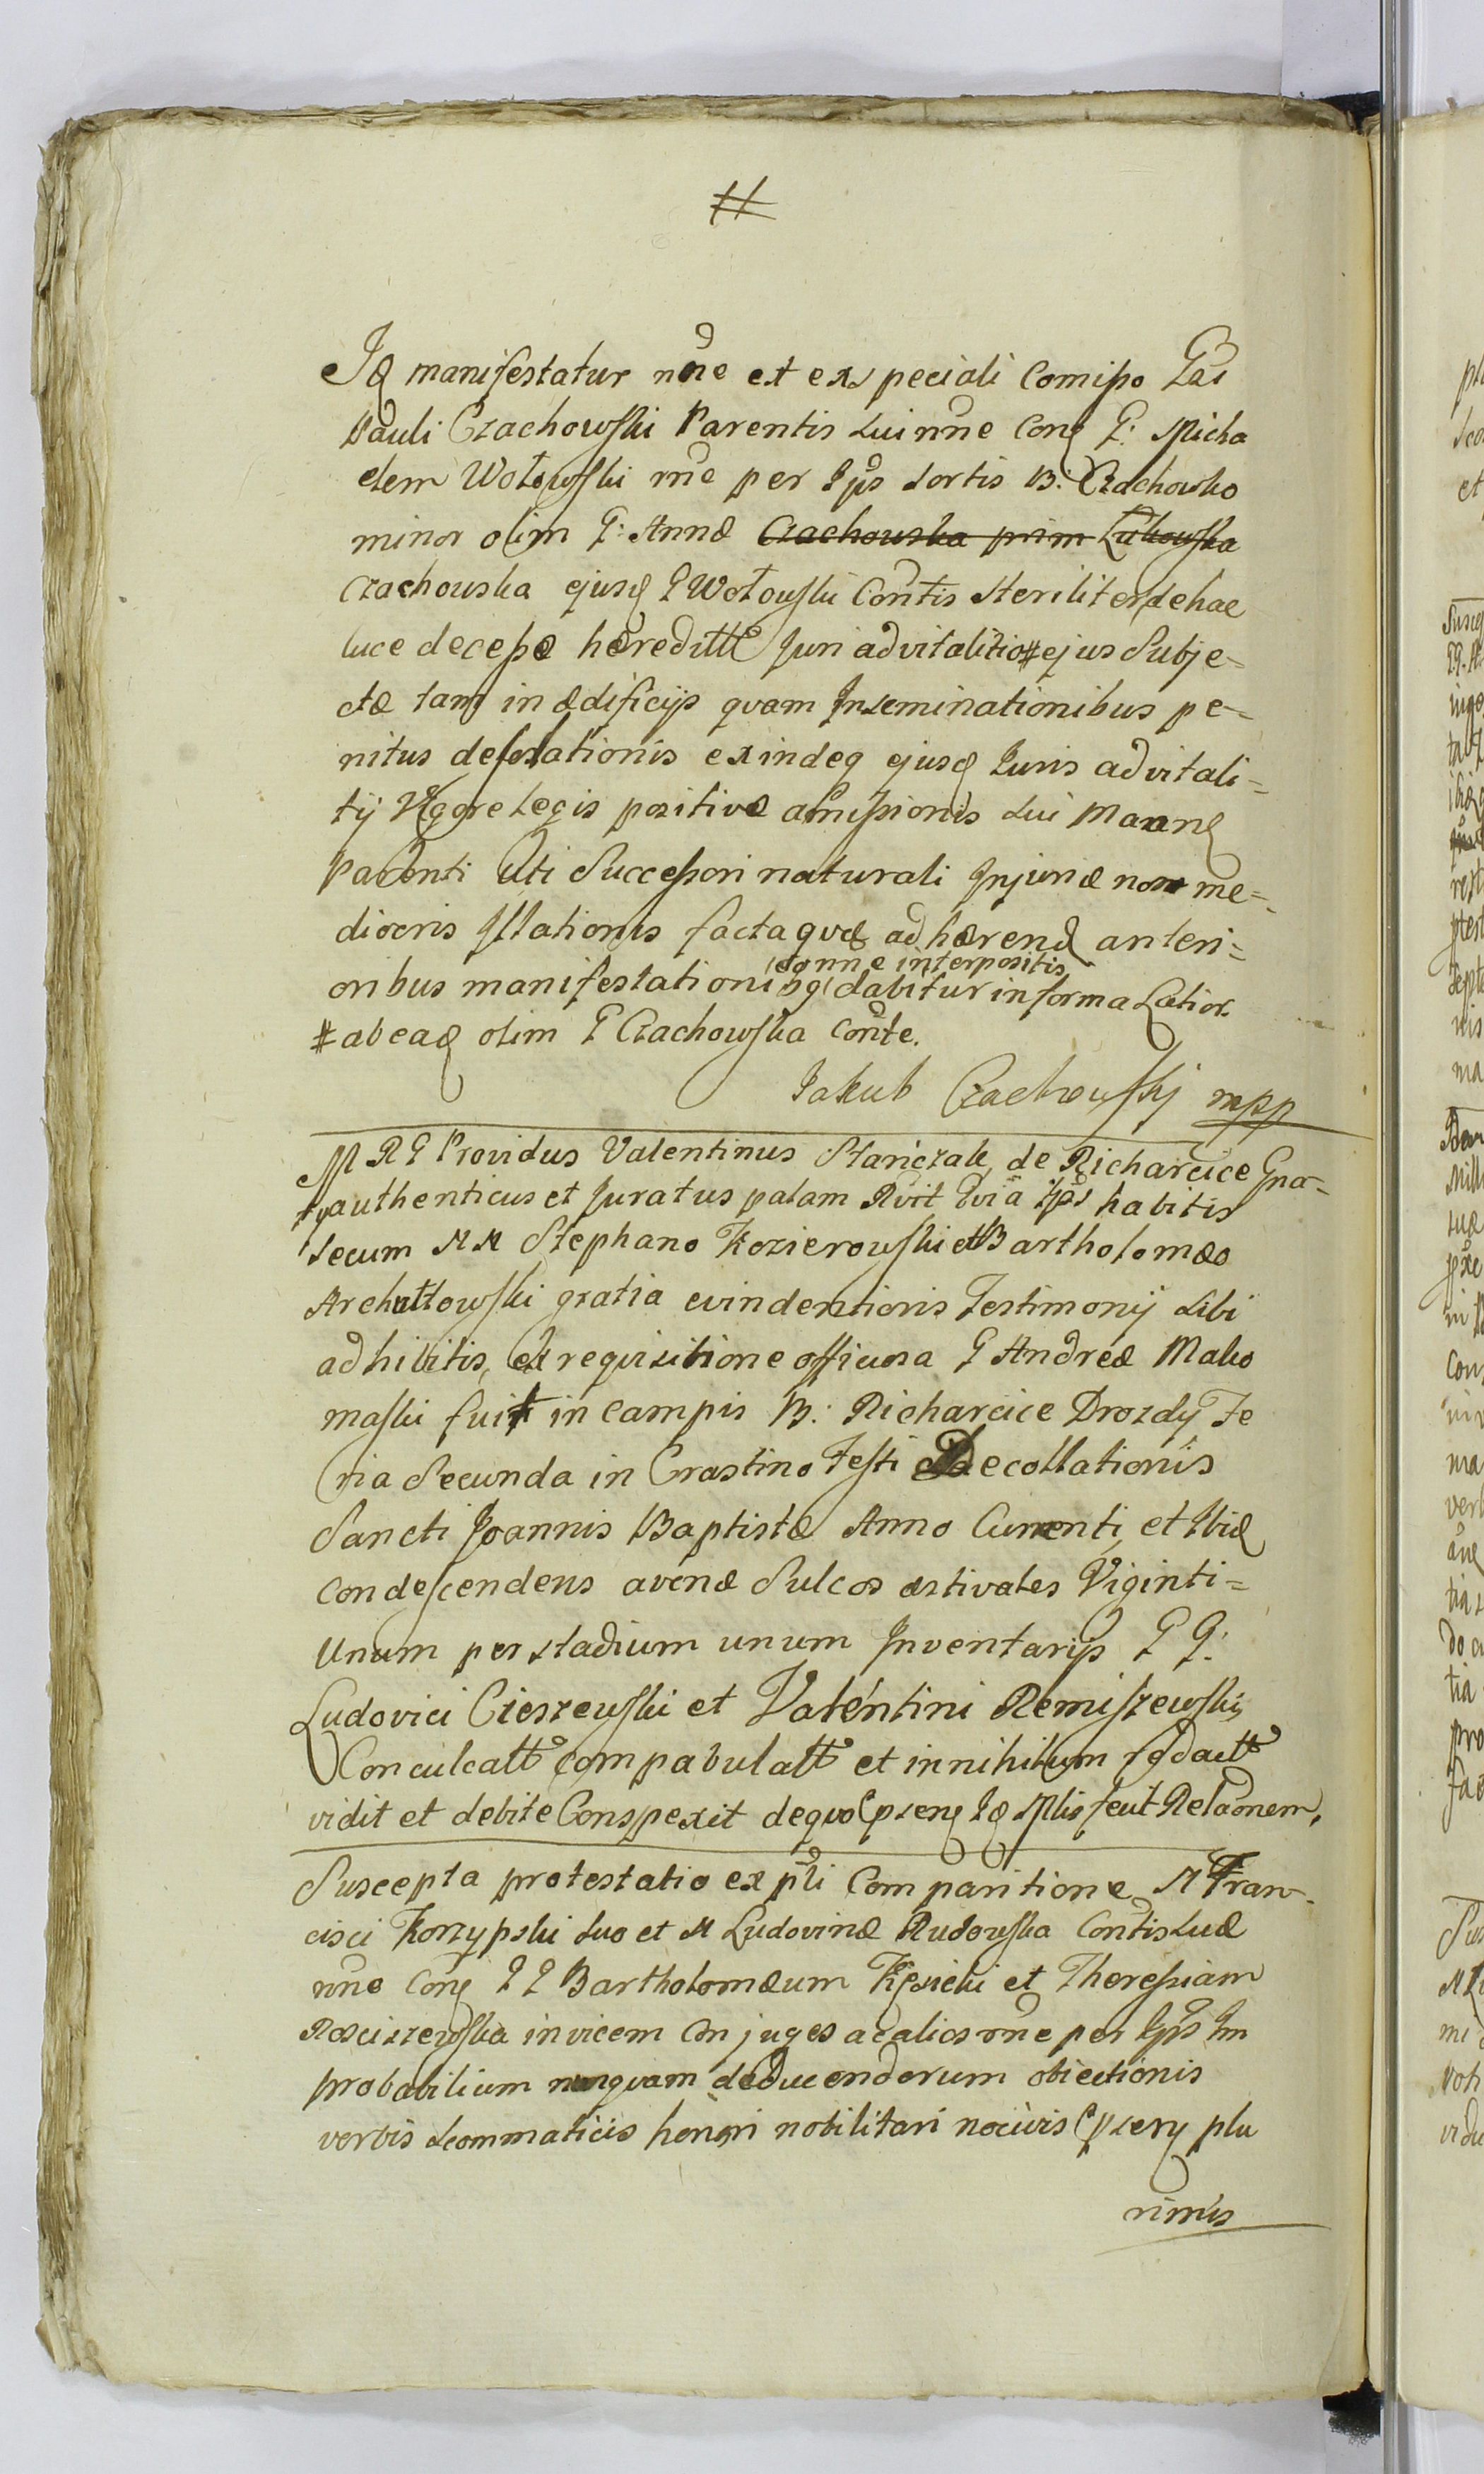 #
Idq manifestatur nne et ex speciali comisso Gsi
Pauli Czachowski Parentis sui nne conq G: Micha
elem Wołowski rne per Ips sortis B. Czachowko
minor olim G: Annæ Czachowska prim Łukowska
Czachowska ejusq G Wołowski Contis steriliter de hac
luce decessæ hæreditt Juri advitalitio # ejus Subje=
ctæ tam in ædificijs quam Inseminationibus pe=
nitus desolationis exindeq ejusq Iuris advitali=
tij Vigore Legis positivæ amissionis sui Manq
Parenti Uti Successori naturali Injuriæ non me=
diocris Illationis facta quæ adhærend anteri=
eo nne interpositis
oribus manifestationibq dabitur in forma Latior.
# ab eadq olim G Czachowska Conte.
Jakub Czachowskj mpp
M R G Providus Valentinus Stanczak, de Richarcice Gna=
authenticus et Juratus palam Rvit Qvia Ips habitis
secum N N Stephano Kozierowski et Bartholomæo
Archuttowski gratia evindentioris Testimonij sibi
adhibitis, ex requisitione officiosa G Andreæ Mako
maski fuit in campis B: Richarcice Drozdy Fe
ria Secunda in Crastino Festi Decollationis
Sancti Joannis Baptistæ Anno Currenti, et Ibidq
condescendens avenæ Sulcos æstivales Viginti=
Unum per stadium unum Inventarijs G G:
Ludovici Cieszewski et Valentini Remiszewski
Conculcatt compabulatt et in nihilum redactt
vidit et debite Conspexit de quo psenq Idq Mlis fecit Relaonem,
Suscepta protestatio ex pli Comparitione N Fran=
cisci Korzypski suo et N Ludovinæ Rudowska Contis suæ
nne Conq G G Bartholomæum Kęsicki et Theressiam
Rosciszewska invicem Conjuges ac alios rne per Ips Im
probabilium nunquam deducendorum obiectionis
verbis scommaticis honori nobilitari nocivis psery plu
rimis